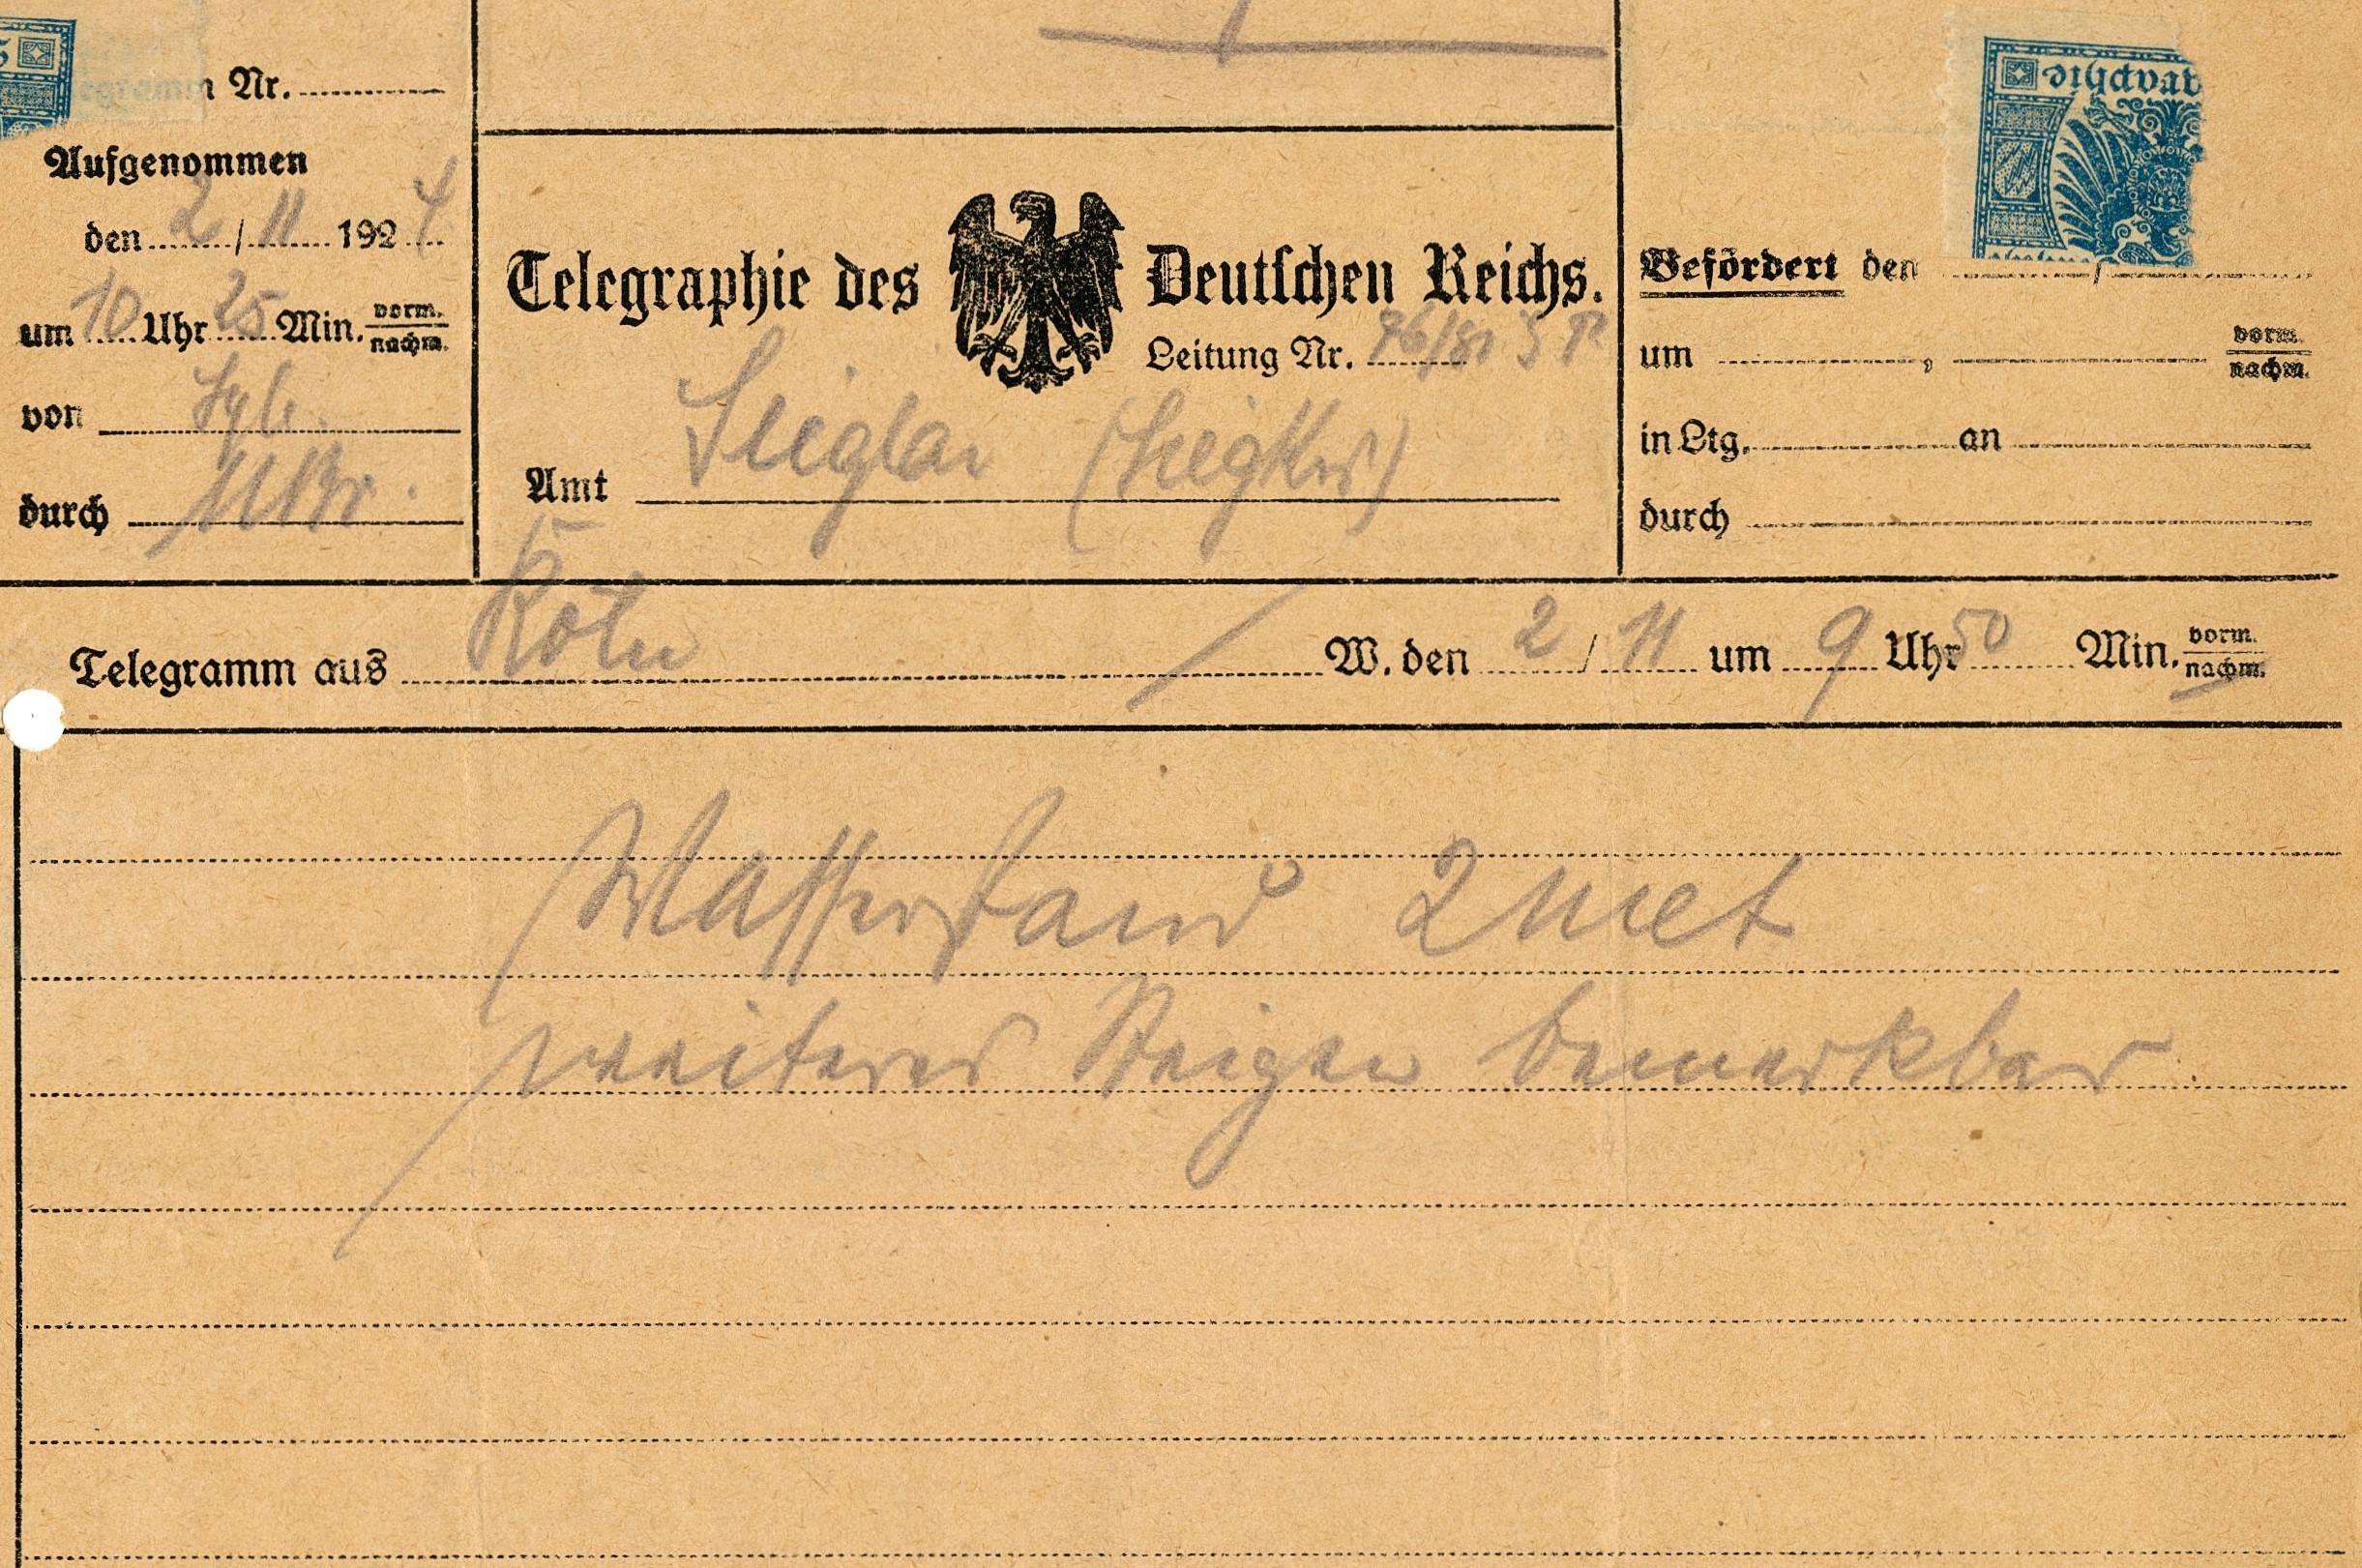 Nr.
Aufgenommen
den 2 / 11 1924
um 10 Uhr 25 Min. vorm. nachm.
von
durch
Telegraphie des Deutschen Reichs.
Leitung Nr.
Amt Sieglar (Siegkrs)
Befördert den /
um , vorm. nachm.
in Ltg. an
durch
Telegramm aus Köln / W. den 2 / 11 um 9 Uhr 50 Min. vorm. nachm.
Wasserstand 2 met
weiteres Steigen bemerkbar